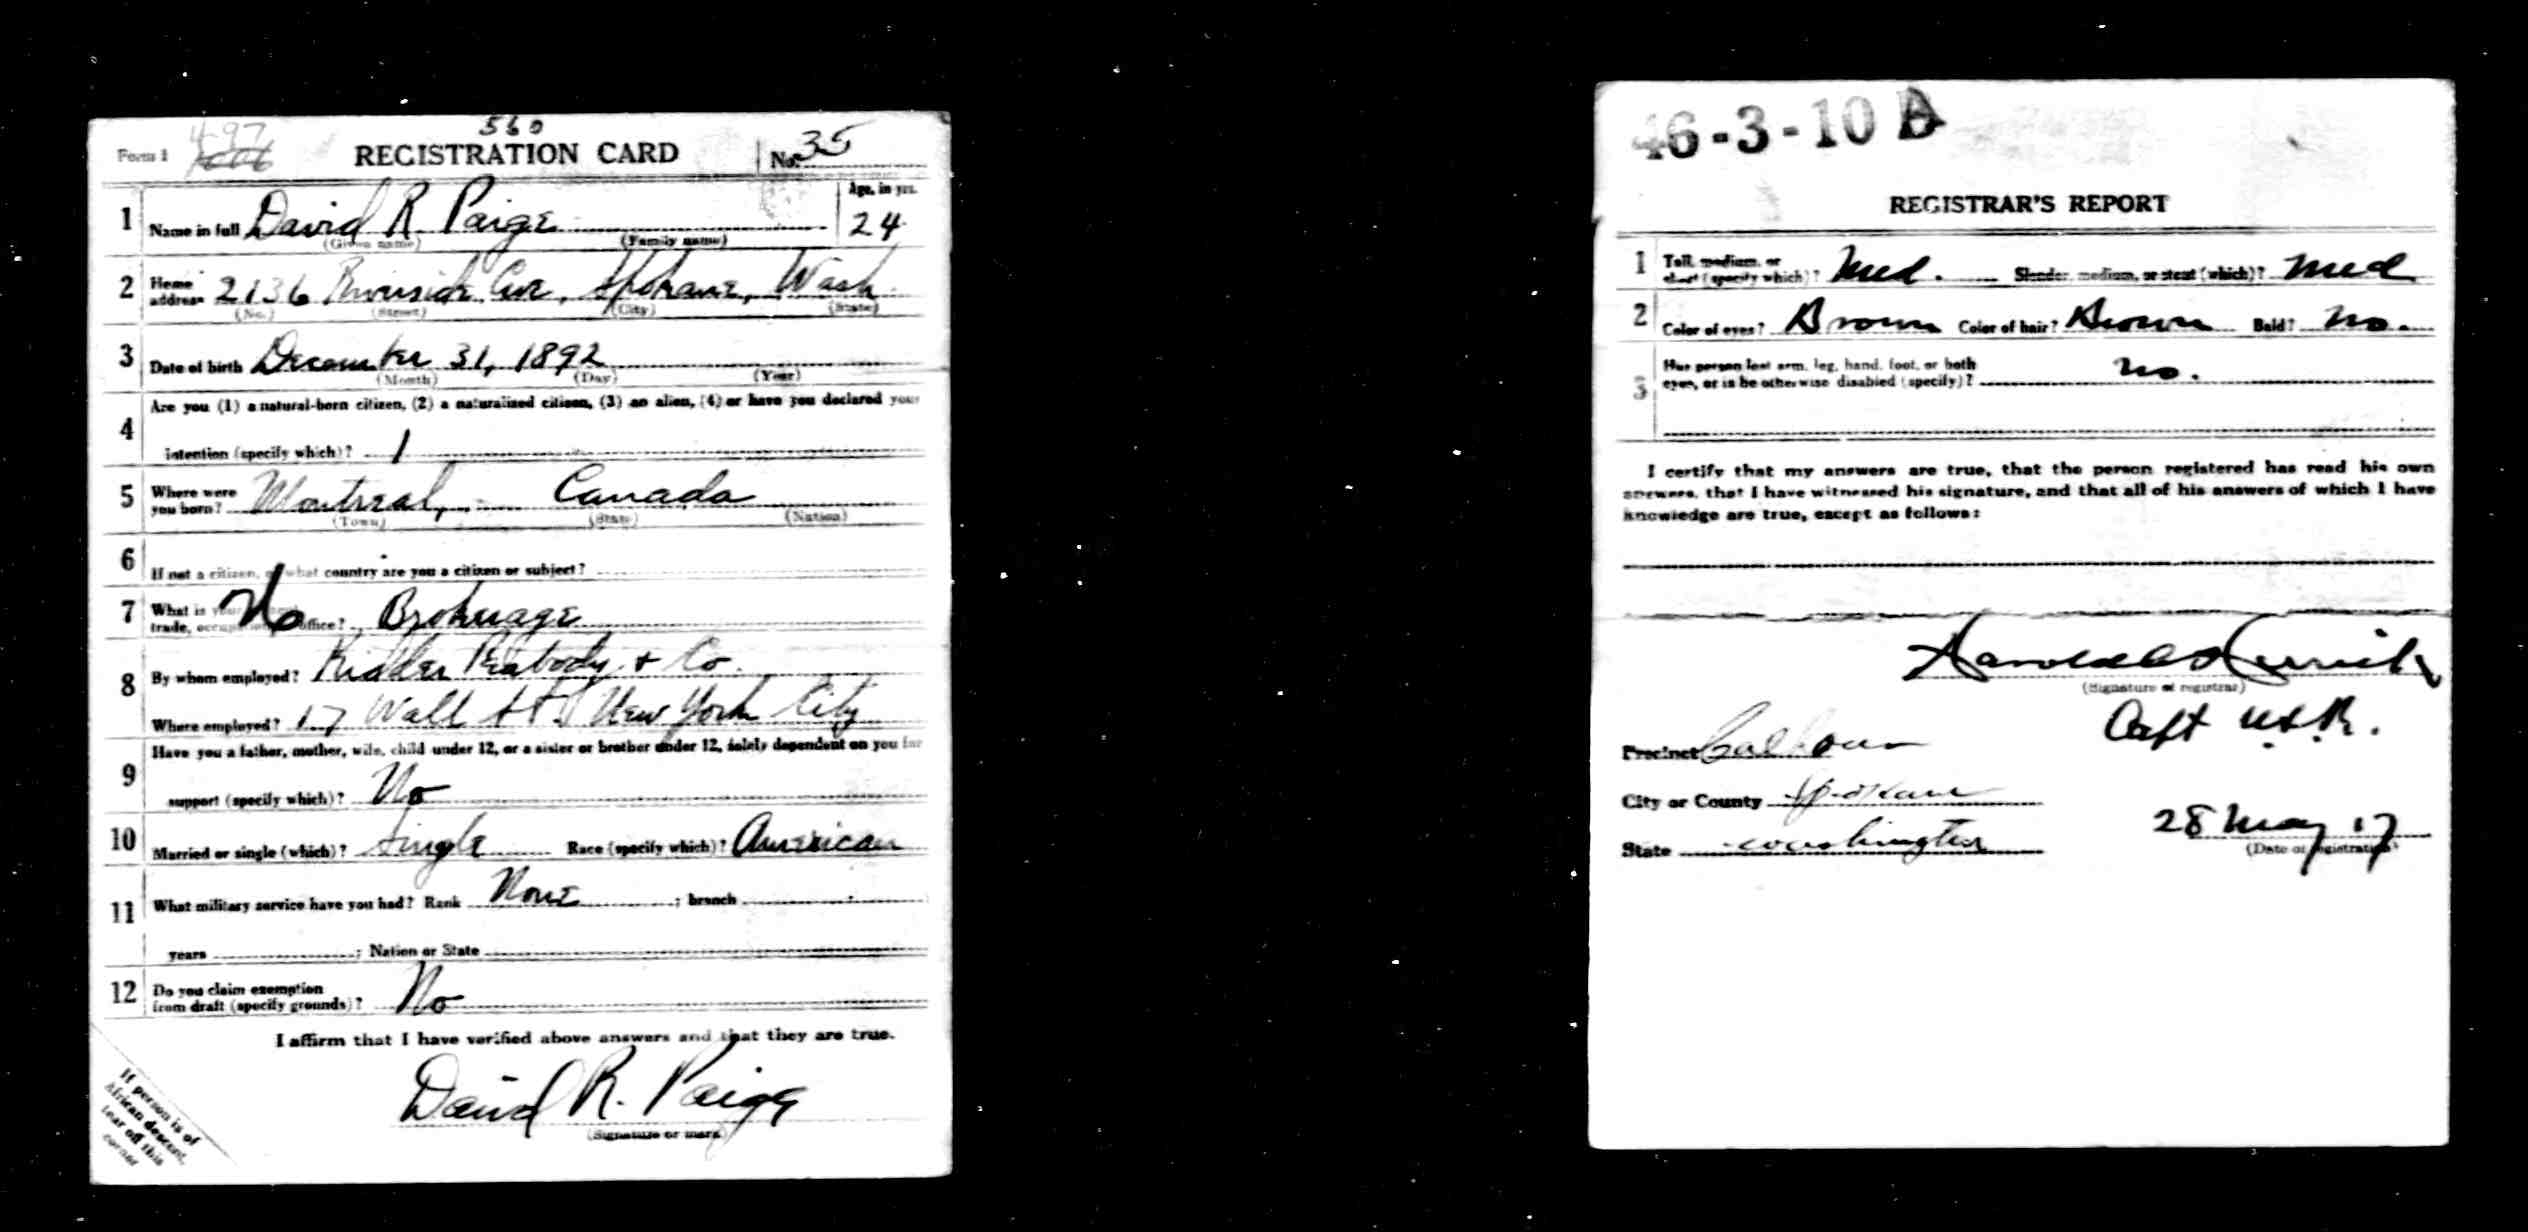 560
Form 1 497 REGISTRATION CARD No. 35
1 Name in full David R. Paige Age, in yrs. 24
(Given name) (Family name)
2 Home address 2136 Riverside Ave, Spokane, Wash
(No.) (Street) (City) (State)
3 Date of birth December 31, 1892
(Month) (Day) (Year)
4 Are you (1) a natural-born citizen, (2) a naturalized citizen, (3) an alien, (4) or have you declared your
intention (specify which)? 1
5 Where were you born? Montreal, Canada
(Town) (State) (Nation)
6 If not a citizen, of what country are you a citizen or subject?
No
7 What is your present trade, occupation, or office? Brokerage
8 By whom employed? Kidder Peabody & Co.
Where employed? 17 Wall St. New York City
9 Have you a father, mother, wife, child under 12, or a sister or brother under 12, solely dependent on you for
support (specify which)? No
10 Married or single (which)? Single Race (specify which)? American
11 What military service have you had? Rank None ; branch
years ; Nation or State
12 Do you claim exemption
from draft (specify grounds)? No
I affirm that I have verified above answers and that they are true.
David R. Paige
(Signature or mark)
If person is of
African descent,
tear off this
corner
46-3-10 A
REGISTRAR'S REPORT
1 Tall, medium, or
short (specify which)? Med. Slender, medium, or stout (which)? Med
2 Color of eyes? Brown Color of hair? Brown Bald? No.
3 Has person lost arm, leg, hand, foot, or both
eyes, or is he otherwise disabled (specify)? No.
I certify that my answers are true, that the person registered has read his own
answers, that I have witnessed his signature, and that all of his answers of which I have
knowledge are true, except as follows:
(Signature of registrar)
Precinct Calhoun Capt U.S.R.
City or County Spokane
State Washington 28 May 17
(Date of registration)